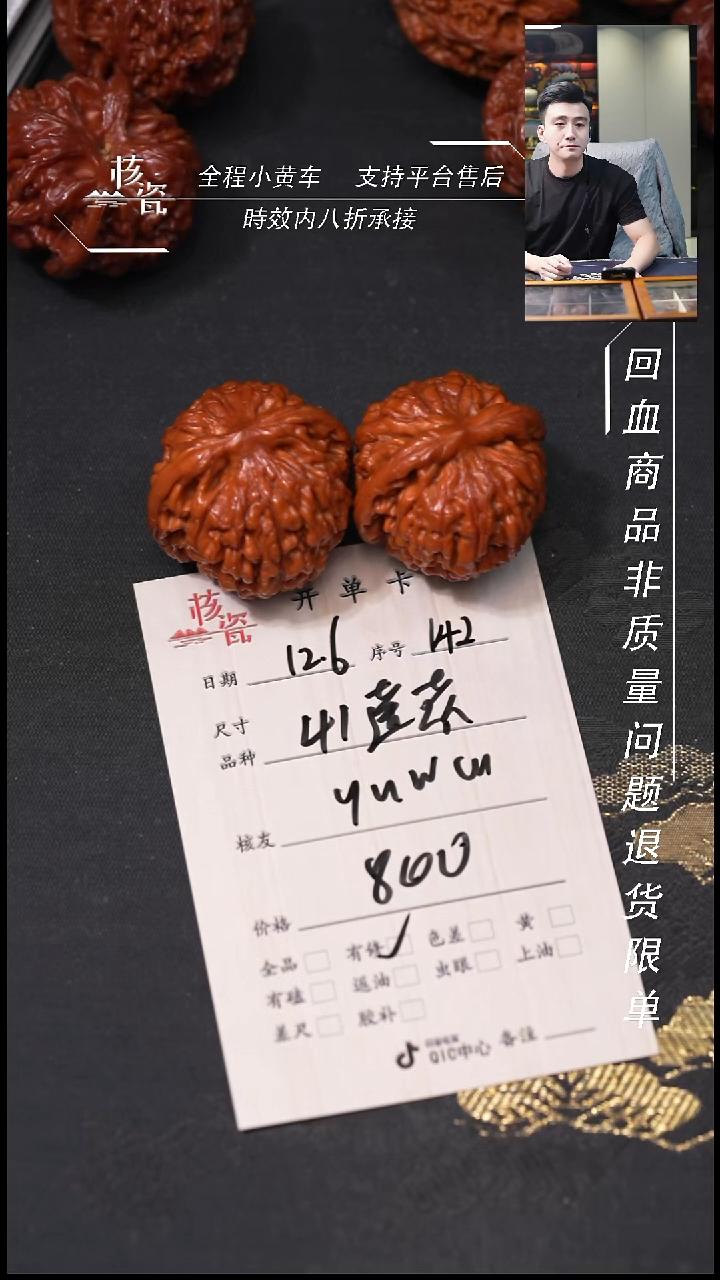 核瓷
全程小黄车 支持平台售后
時效内八折承接
回血商品非质量问题退货限单
核瓷
开单卡
日期 12.6 序号 142
尺寸
品种 41
yuwcu
核友
800
价格
全品 有修 ✓ 色差 黄
有磕 返油 虫眼 上油
差尺 胶补
QIC中心 备注